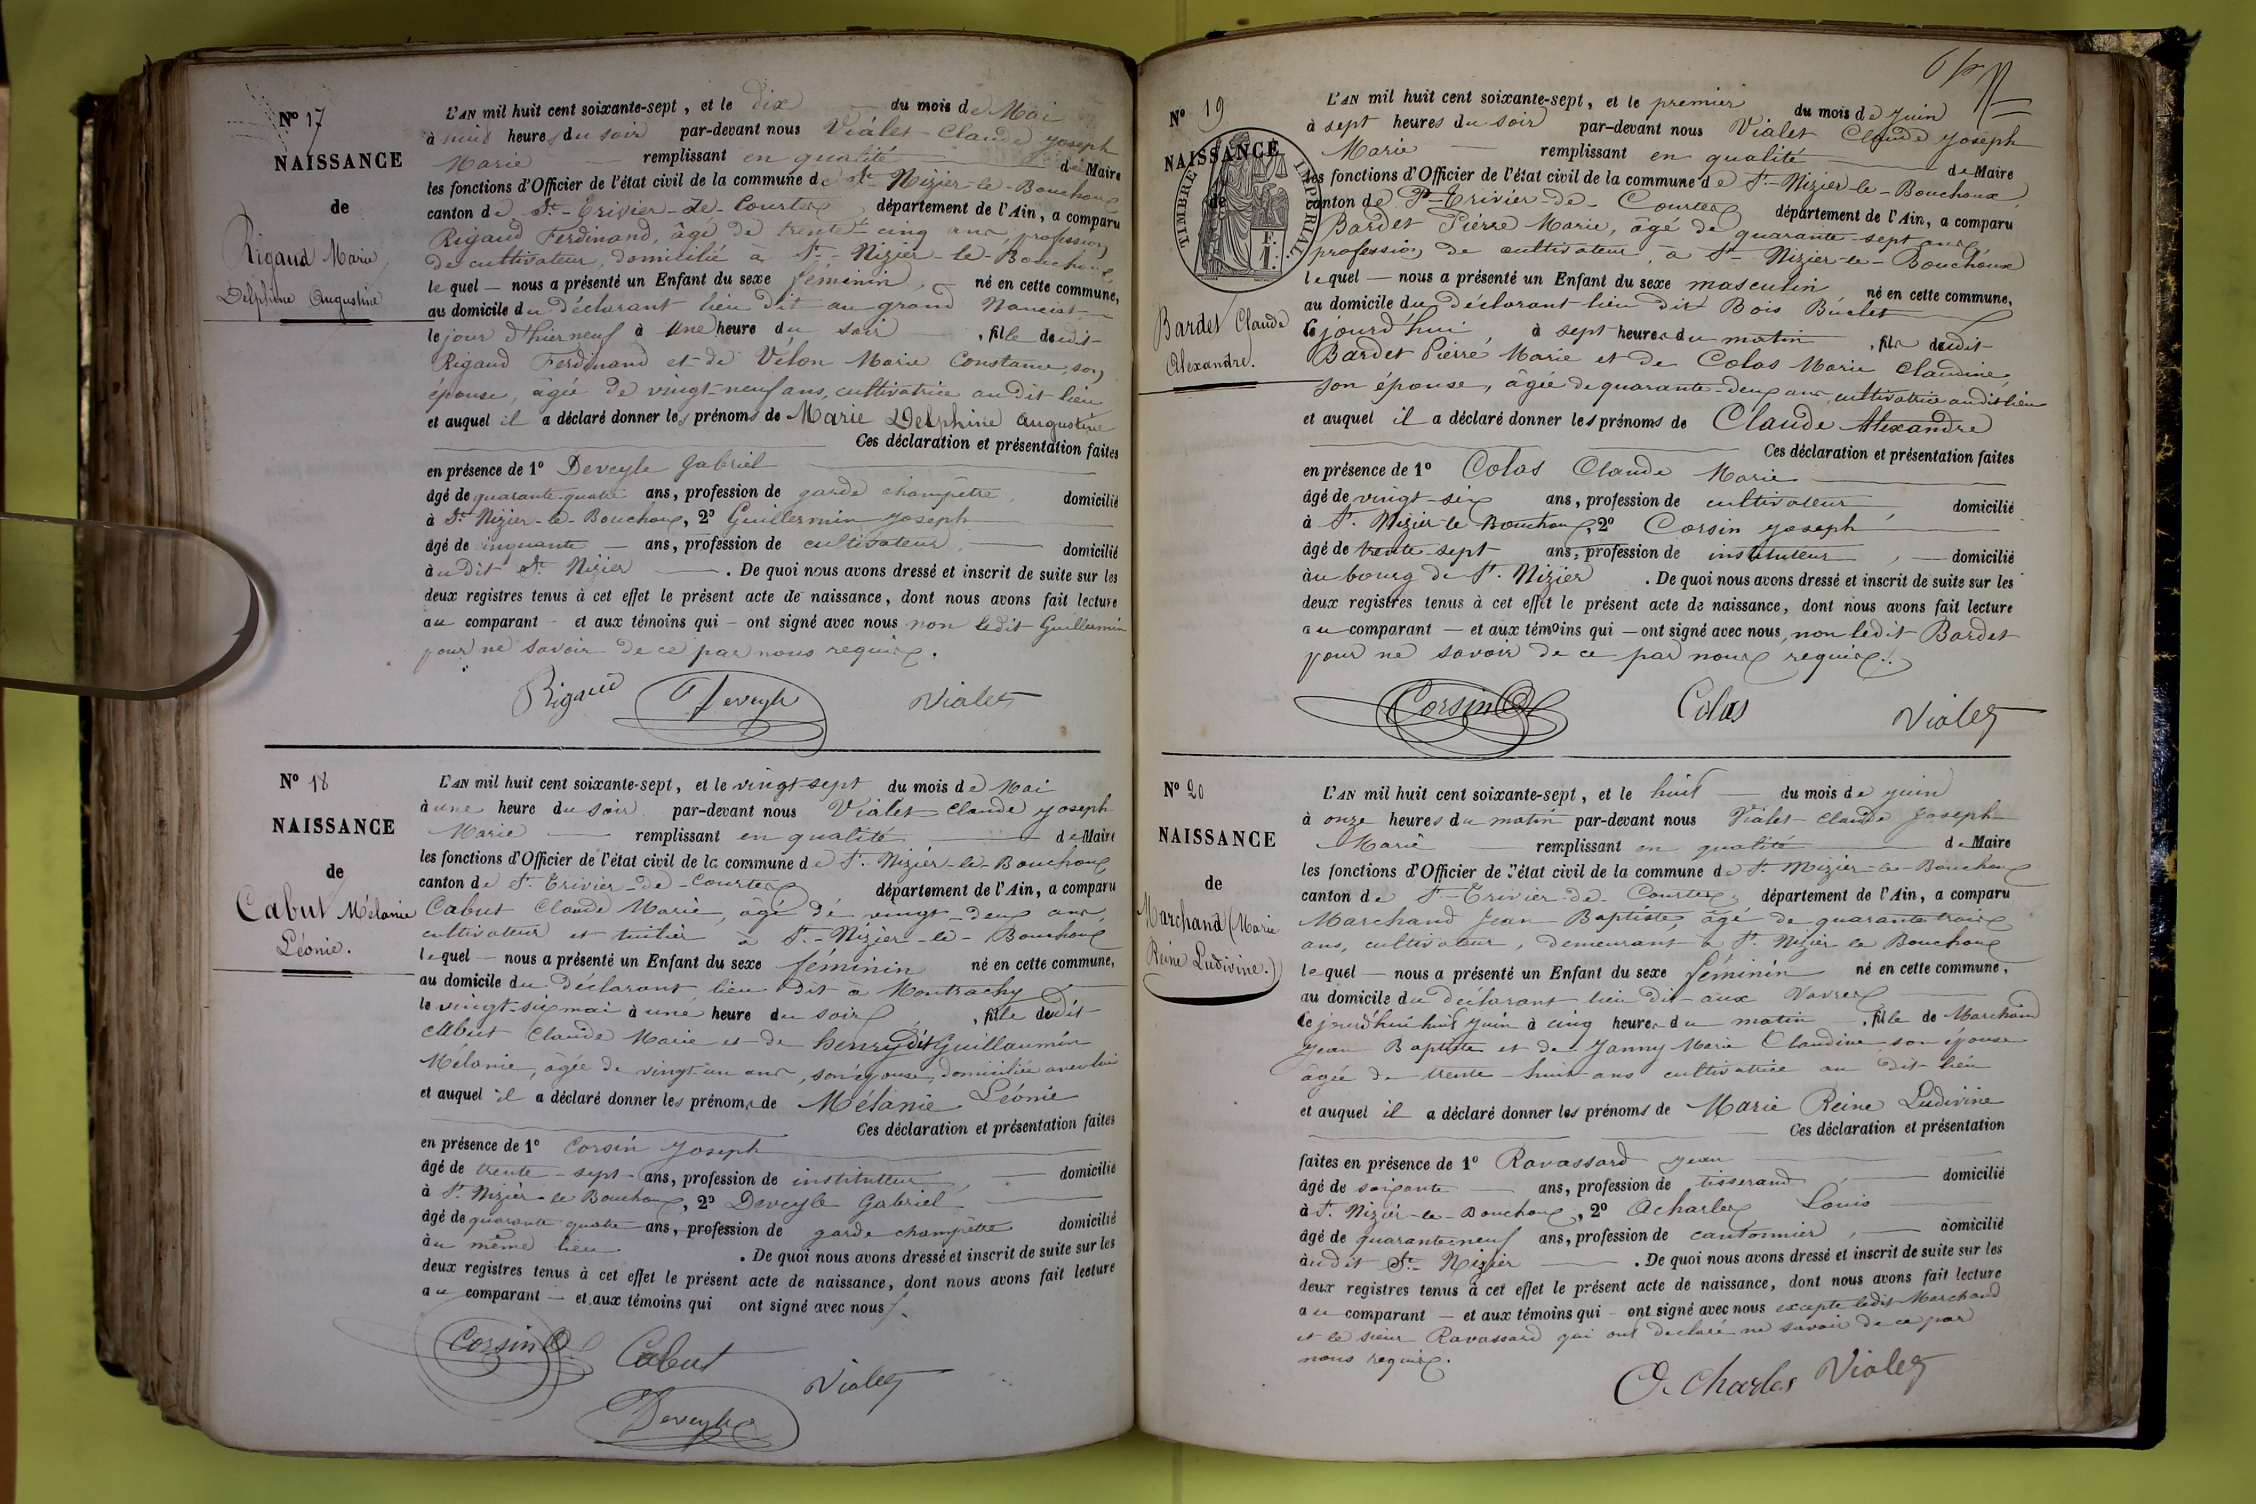 Nº 17
NAISSANCE
de
Rigaud Marie
Delphine Augustine
L'AN mil huit cent soixante-sept, et le dix du mois de Mai
à heures du soir par-devant nous Vialet Claude Joseph
Marie remplissant en qualité de Maire
les fonctions d'Officier de l'état civil de la commune de St-Nizier-le-Bouchoux
canton de St-Trivier-de-Courtes département de l'Ain, a comparu
Rigaud Ferdinand, âgé de trente-cinq ans, profession
de cultivateur, domicilié à St-Nizier-le-Bouchoux
lequel — nous a présenté un Enfant du sexe féminin, né en cette commune,
au domicile du déclarant lieu dit au grand
le jour d'hier neuf à une heure du soir, fille dudit
Rigaud Ferdinand et de Vélon Marie Constance, son
épouse, âgée de vingt-neuf ans, cultivatrice audit lieu
et auquel il a déclaré donner les prénoms de Marie Delphine Augustine
Ces déclaration et présentation faites
en présence de 1º Deveyle Gabriel
âgé de quarante-quatre ans, profession de garde champêtre, domicilié
à St Nizier-le-Bouchoux, 2º Guillermin Joseph
âgé de cinquante — ans, profession de cultivateur, domicilié
audit St Nizier —. De quoi nous avons dressé et inscrit de suite sur les
deux registres tenus à cet effet le présent acte de naissance, dont nous avons fait lecture
au comparant — et aux témoins qui — ont signé avec nous non ledit Guillermin
pour ne savoir de ce par nous requis.
Rigaud Deveyle Vialet
Nº 18
NAISSANCE
de
Cabut Mélanie
Léonie.
L'AN mil huit cent soixante-sept, et le vingt-sept du mois de Mai
à une heure du soir par-devant nous Vialet Claude Joseph
Marie remplissant en qualité de Maire
les fonctions d'Officier de l'état civil de la commune de St-Nizier-le-Bouchoux
canton de St-Trivier-de-Courtes département de l'Ain, a comparu
Cabut Claude Marie, âgé de vingt-deux ans,
cultivateur et tuilier à St-Nizier-le-Bouchoux
lequel — nous a présenté un Enfant du sexe féminin né en cette commune,
au domicile du déclarant, lieu dit à Montrachy
le vingt-six mai à une heure du soir, fille dudit
Cabut Claude Marie et de henry dit Guillaumin
Mélanie, âgée de vingt-un ans, son épouse, domiciliée avec lui
et auquel il a déclaré donner les prénoms de Mélanie Léonie
Ces déclaration et présentation faites
en présence de 1º Corsin Joseph
âgé de trente-sept ans, profession de instituteur, domicilié
à St Nizier-le Bouchoux, 2º Deveyle Gabriel
âgé de quarante quatre ans, profession de garde champêtre domicilié
au même lieu. De quoi nous avons dressé et inscrit de suite sur les
deux registres tenus à cet effet le présent acte de naissance, dont nous avons fait lecture
au comparant — et aux témoins qui ont signé avec nous.
Corsin Cabut Vialet
Deveyle
Nº 19
NAISSANCE
de
TIMBRE IMPÉRIAL
Bardet Claude
Alexandre.
L'AN mil huit cent soixante-sept, et le premier du mois de Juin
à sept heures du soir par-devant nous Vialet Claude Joseph
Marie remplissant en qualité de Maire
les fonctions d'Officier de l'état civil de la commune de St-Nizier-le-Bouchoux,
canton de St-Trivier-de-Courtes département de l'Ain, a comparu
Bardet Pierre Marie, âgé de quarante-sept ans,
profession de cultivateur, à St-Nizier-le-Bouchoux
lequel — nous a présenté un Enfant du sexe masculin né en cette commune,
au domicile du déclarant lieu dit Bois Buclet
ce jourd'hui à sept heures du matin, fils dudit
Bardet Pierre Marie et de Colas Marie Claudine,
son épouse, âgée de quarante-deux ans, cultivatrice audit lieu
et auquel il a déclaré donner les prénoms de Claude Alexandre
Ces déclaration et présentation faites
en présence de 1º Colas Claude Marie
âgé de vingt-six ans, profession de cultivateur, domicilié
à St. Nizier-le Bouchoux, 2º Corsin Joseph
âgé de trente-sept ans, profession de instituteur, — domicilié
au bourg de St. Nizier. De quoi nous avons dressé et inscrit de suite sur les
deux registres tenus à cet effet le présent acte de naissance, dont nous avons fait lecture
au comparant — et aux témoins qui — ont signé avec nous, non ledit Bardet
pour ne savoir de ce par nous requis.
Corsin Colas Vialet
Nº 20
NAISSANCE
de
Marchand (Marie
Reine Ludivine.)
L'AN mil huit cent soixante-sept, et le huit du mois de juin
à onze heures du matin par-devant nous Vialet Claude Joseph
Marie remplissant en qualité de Maire
les fonctions d'Officier de l'état civil de la commune de St-Nizier-le-Bouchoux
canton de St-Trivier-de-Courtes, département de l'Ain, a comparu
Marchand Jean Baptiste, âgé de quarante trois
ans, cultivateur, demeurant à St. Nizier le Bouchoux
lequel — nous a présenté un Enfant du sexe féminin né en cette commune,
au domicile du déclarant lieu dit aux
ce jourd'hui huit juin à cinq heures du matin, fille de Marchand
Jean Baptiste et de Janny Marie Claudine son épouse
âgée de trente-huit ans cultivatrice au dit lieu
et auquel il a déclaré donner les prénoms de Marie Reine Ludivine
Ces déclaration et présentation
faites en présence de 1º Ravassard Jean
âgé de soixante ans, profession de tisserand, domicilié
à St. Nizier-le-Bouchoux, 2º Acharles Louis
âgé de quarante-neuf ans, profession de cantonnier, domicilié
audit St-Nizier. De quoi nous avons dressé et inscrit de suite sur les
deux registres tenus à cet effet le présent acte de naissance, dont nous avons fait lecture
au comparant — et aux témoins qui - ont signé avec nous excepté ledit Marchand
et le sieur Ravassard qui ont déclaré ne savoir de ce par
nous requis.
Acharles Vialet